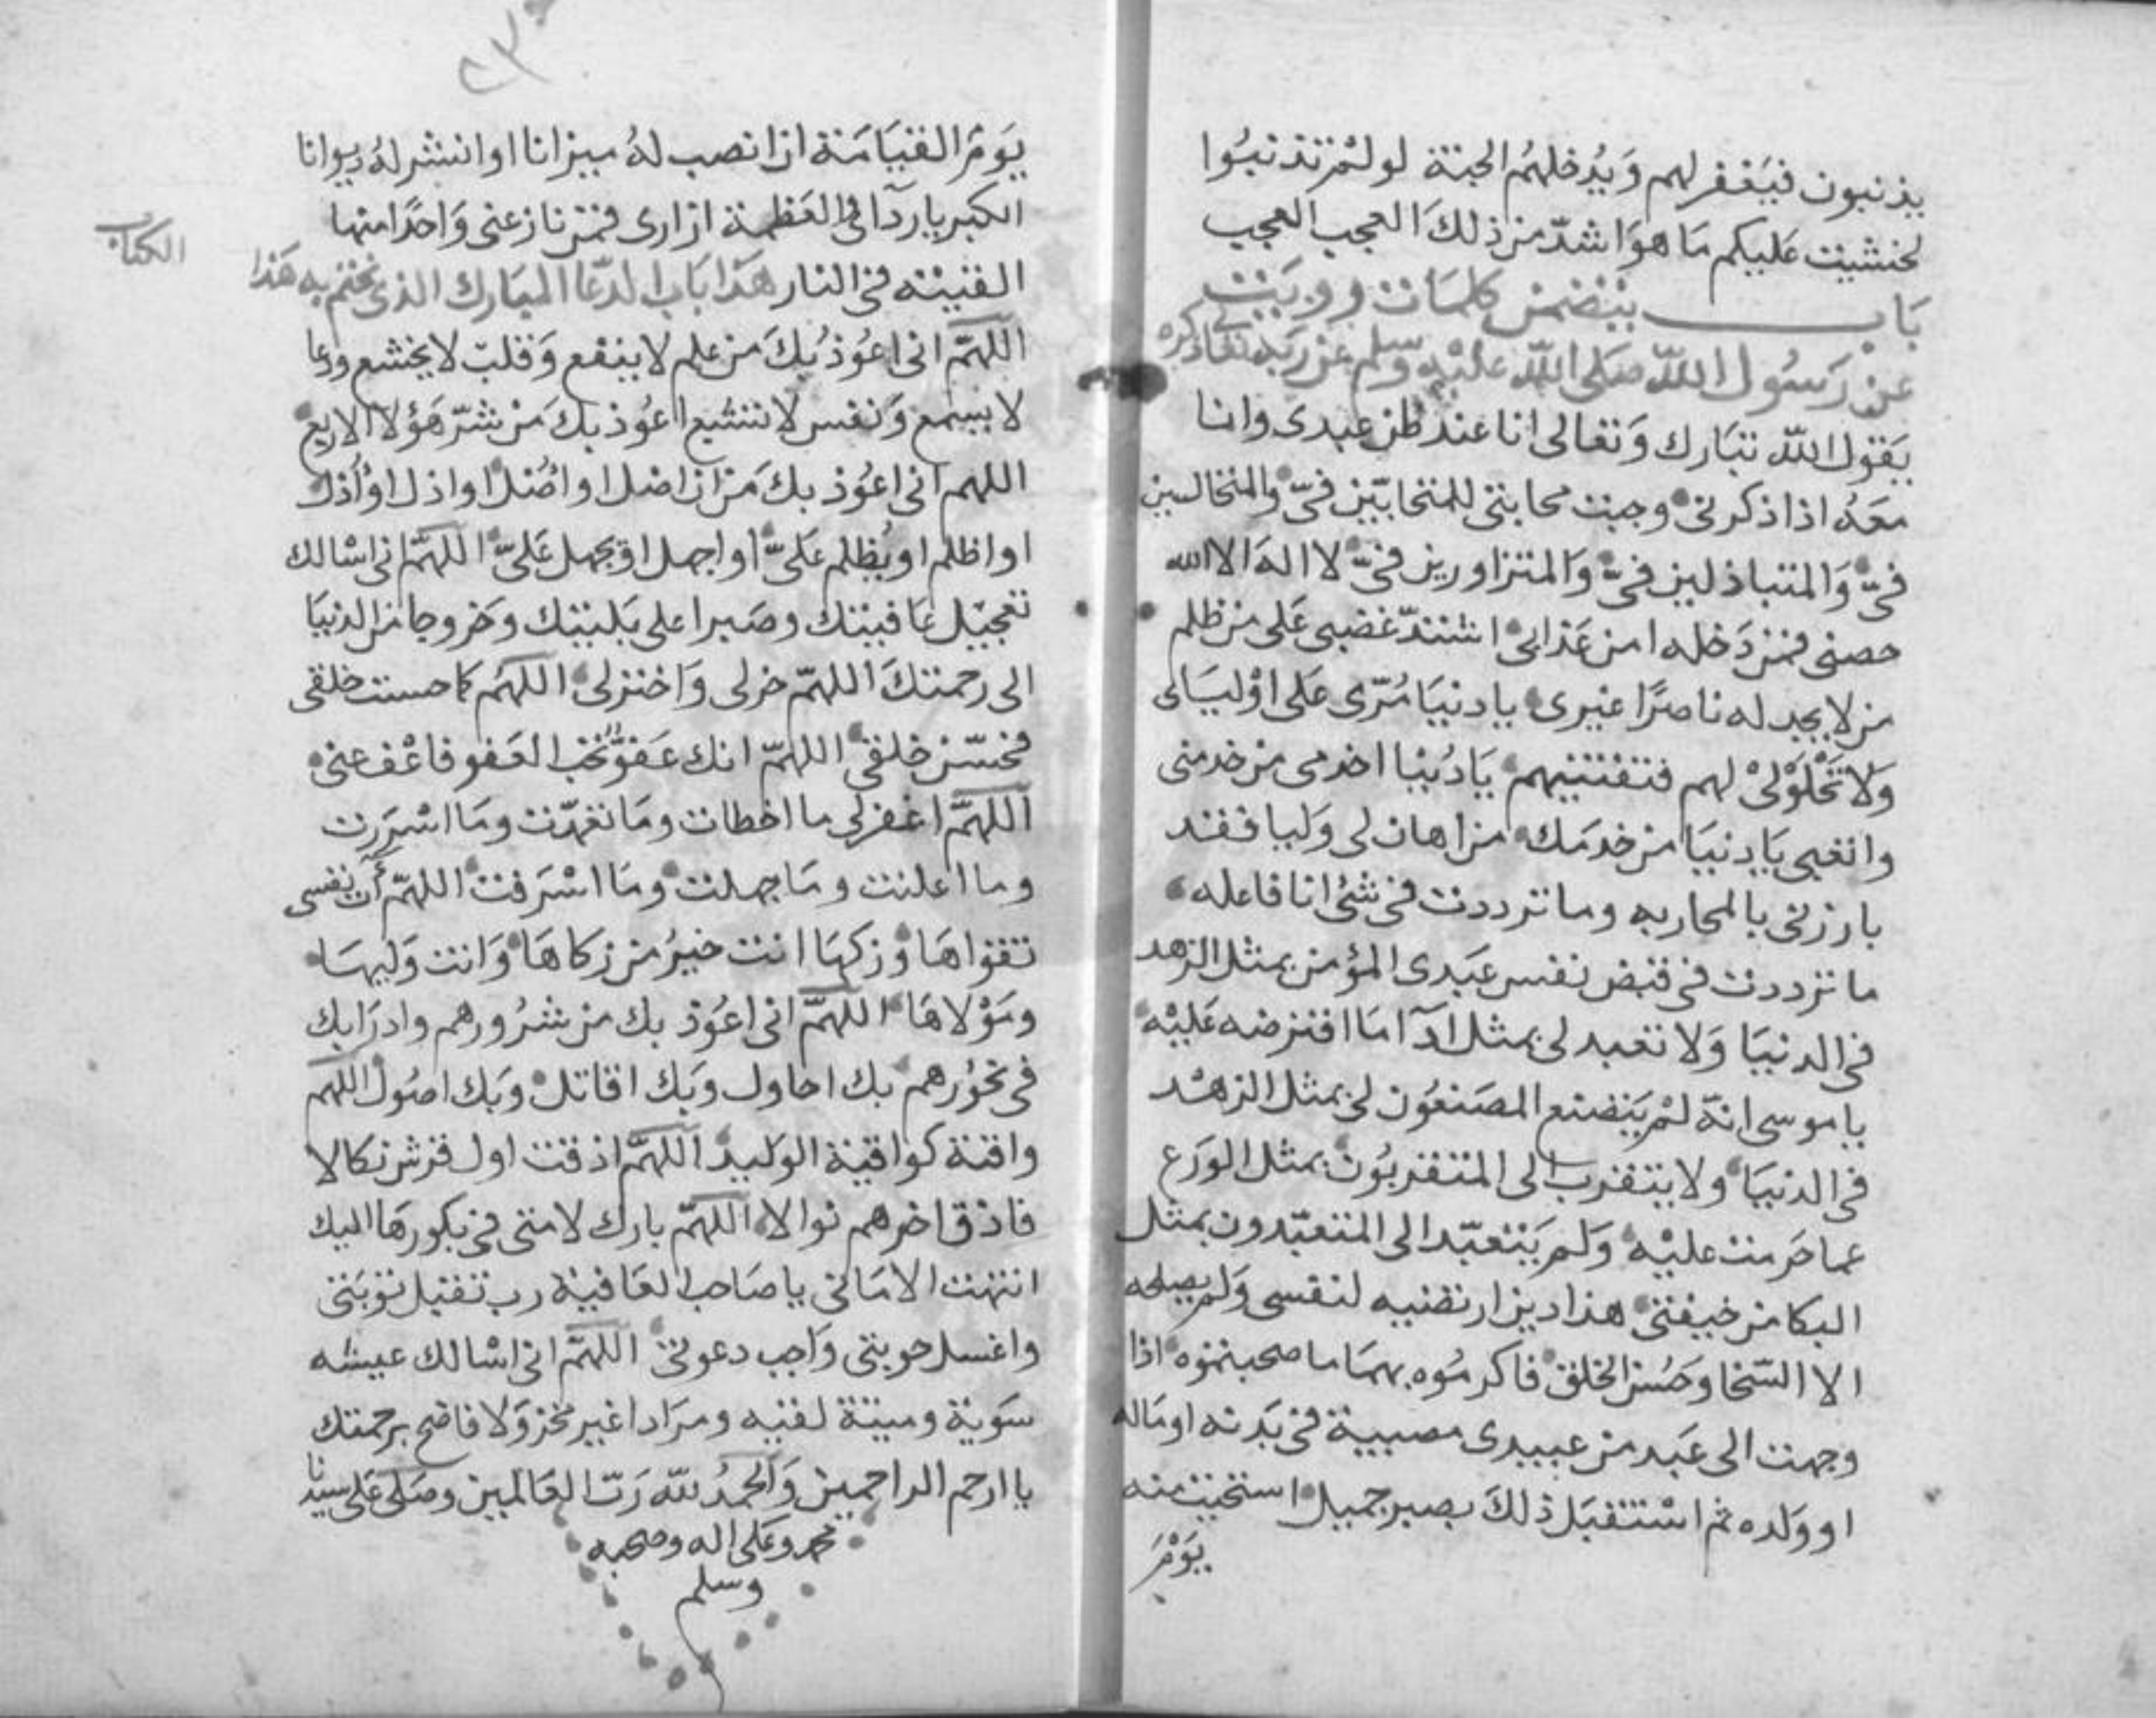 يذنبون فيَغفر لهم وَيُدخلهُم الجنة لو لمْ تذنبُوا
لخشيت عَليكم مَا هوَ اشدّ من ذلكَ العجب العجب
بَاب يتضمن كلمَات رويَت
عن رَسُول اللّه صَلى اللّه عليْه وسلم عن ربه تعالى ذكره
يَقول اللّه تبَارك وَتعالى انا عند ظن عبدى وانا
معَهُ اذا ذكرنى وجبت محابتى للمتحابّين فىّ والمتجالسين
فىّ وَالمتباذلين فىّ وَالمتزاورين فىّ لا الهَ الا الله
حصنى فمن دَخله امن عَذابى اشتدّ غضبى عَلى من ظلم
من لا يجد له ناصرًا غيرى يا دنيَا مُرّى عَلى اوْليَائى
وَلا تحْلوَلىْ لهم فتفتنيهم يَا دُنيا اخدمى من خدمنى
واتعبى يَا دنيَا من خدمَك من اهان لى وَليا فقد
بارزنى بالمحاربه وما ترددت فى شئ انا فاعله
ما ترددت فى قبض نفس عبَدى المؤمن بمثل الزهد
فى الدنيَا وَلا تعبد لى بمثل ادآ مَا افترضه عَليْه
يا موسى انهّ لمْ يَتصنع المصَنعُون لى بمثل الزهْد
فى الدنيَا ولا يتقرب الى المتقربُون بمثل الورَع
عما حَرمت عليْه وَلم يَتعبّد الى المتعبّدون بمثل
البكا من خيفتى هذا دين ارتضيه لنفسى وَلم يصلحه
الا السّخا وحُسن الخلق فاكرمُوه بهمَا ما صحبتموه اذا
وجهت الى عَبد من عبيدى مصيبة فى بَدنه او مَاله
او وَلده ثم اسْتقبَل ذلكَ بصبر جميل استحيت منه
يَوْمَ
٢٣
يَومَ القيَامَة ان انصب لهُ ميزانا او انشر لهُ ديوانا
الكبريا ردآى والعَظمة ازارى فمن نازعنى وَاحدًا منهما
القيته فى النار هَذا بَاب الدعَا المبَارك الذى نختم به هَذا
الكتاب
اللهمّ انى اعوُذ بُكَ من علم لا ينفع وَقلب لا يخشع ودعا
لا يسمع وَنفس لا تشبع اعوُذ بكَ مَن شرّ هَؤلآ الاربع
اللهم انى اعوُذ بكَ مَن ان اضل او اضُل او اذل او اُذل
او اظلم او يُظلم عَلىّ او اجهل او يجهل عَلىّ اللهمّ انى اسْالك
تعجيْل عَافيتك وصَبرا على بَليتك وخروجا من الدنيَا
الى رحمتكَ اللهمّ خر لى وَاختر لى اللهَم كما حسنت خلقى
فحسّن خلقى اللهمّ انك عَفوّ تحب العَفو فاعْف عنى
اللهمّ اغفر لى ما اخطات ومَا تعَمّدت ومَا اسْرَرت
وما اعلنت ومَا جهلت ومَا اسْرَفت اللهمّ اَت نفسى
تقواهَا وَزكهَا انت خيرُ من زكاهَا وَانت وَليهَا
ومَوْلاهَا اللهمّ انى اعوُذ بك من شرُورهم وادرَا بك
فى نحوُرهم بك احاول وبَك اقاتل وبَك اصُول اللهم
واقية كواقية الوليد اللهمّ اذقت اول قرش نكالا
فاذق اخرهم نوالا اللهمّ بارك لامتى فى بكورهَا اليك
انتهت الامَانى يا صَاحب العَافية رب تقبل توبَتى
واغسل حوبتى وَاجب دعوتى اللهمّ انى اسْالك عيشه
سَوية وميتة نقيه ومرَدا غير مخز وَلا فاضح برحمتك
يا ارحم الراحمين وَالحمدُ للّه رَبّ العَالمين وصَلى عَلى سيدنا
محمد وعَلى اله وصحبه
وسلم